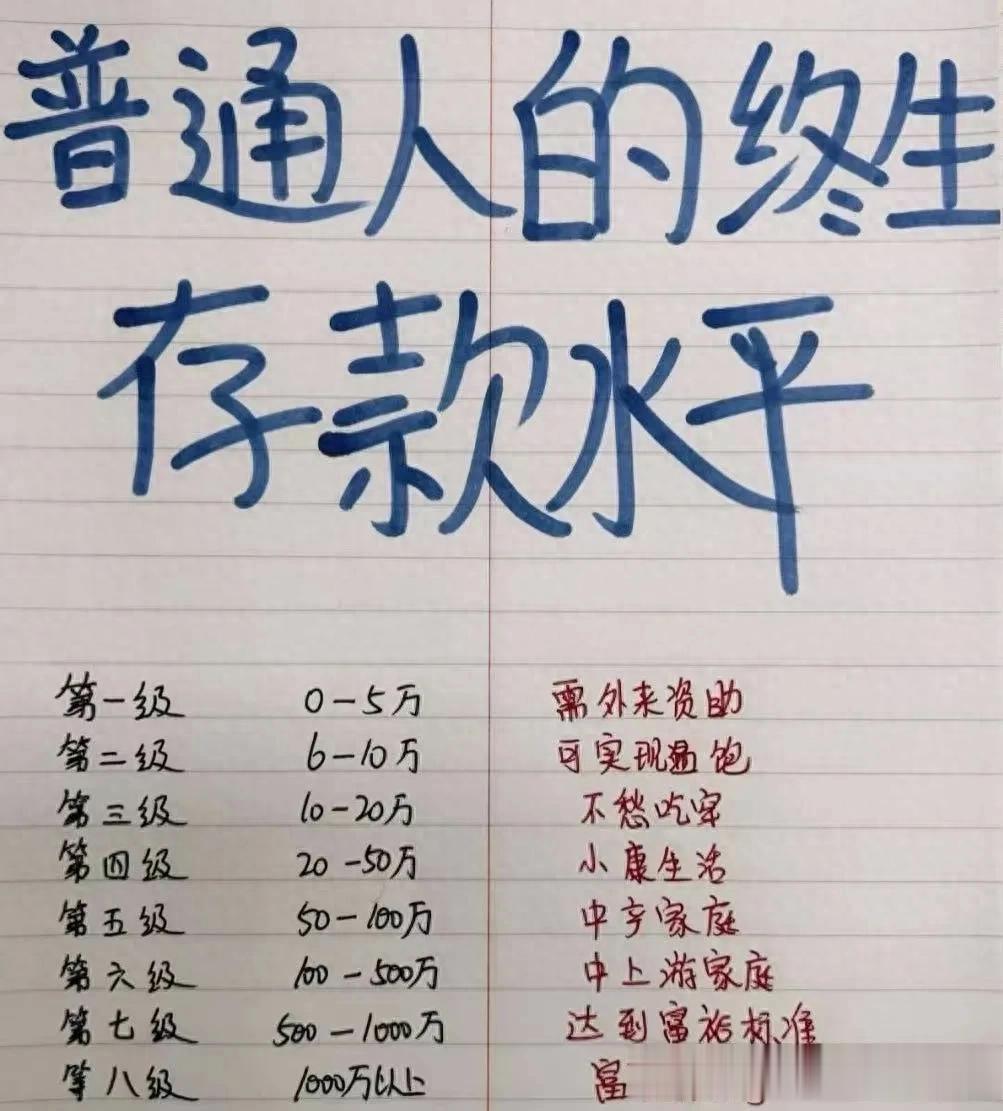 普通人的终生
存款水平
第一级 0-5万 需外来资助
第二级 6-10万 可实现温饱
第三级 10-20万 不愁吃穿
第四级 20-50万 小康生活
第五级 50-100万 中产家庭
第六级 100-500万 中上游家庭
第七级 500-1000万 达到富裕标准
第八级 1000万以上 富